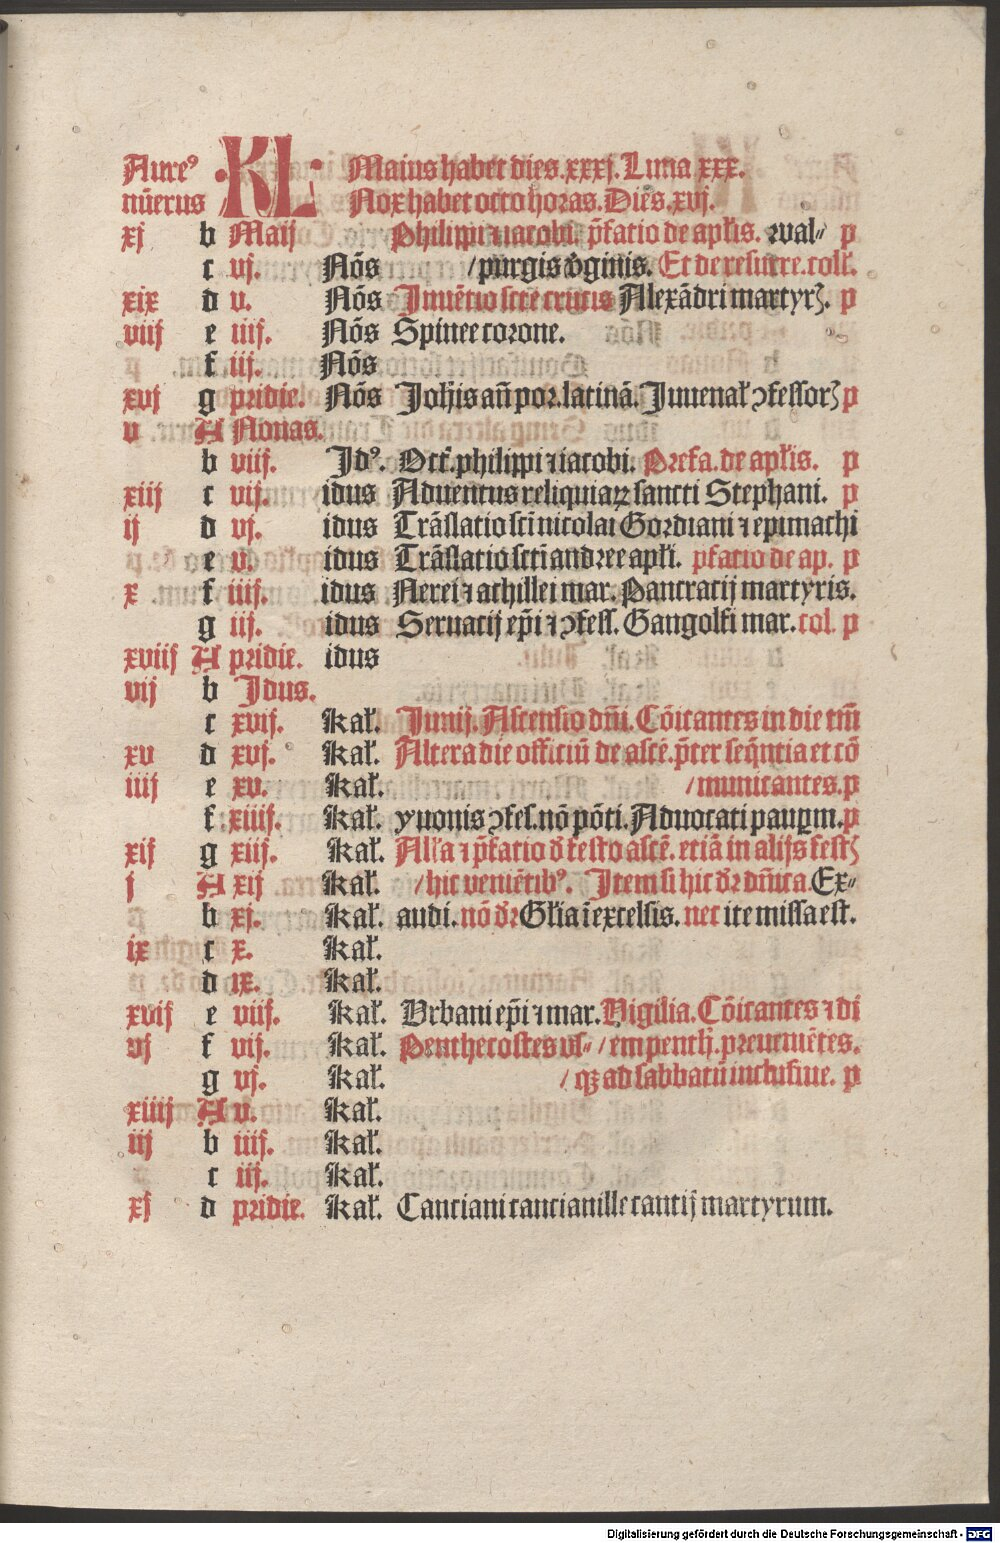 Aureꝰ ·KL· Maius habet dies.xxxj.Luna xxx.
nūerus Nox habet octo horas.Dies.xvj.
xj b Maij Philippi ⁊ iacobi. p̄fatio de apl̄is. ⁊wal⸗ p
c vj. Nōs /purgis v̄ginis. Et de resurre.coll̄.
xix d v. Nōs Inuētio scē̄ crucis Alexādri martyrꝝ. p
viij e iiij. Nōs Spinee corone.
f iij. Nōs
xvj g pridie. Nōs Joh̄is an̄ por.latinā. Juuenal̄ ꝯfessorꝝ p
v A Nonas.
b viij. Jdꝰ. Oct̄.philippi ⁊ iacobi. Prefa.de apl̄is. p
xiij c vij. idus Aduentus reliquiaꝝ sancti Stephani. p
ij d vj. idus Trāslatio sct̄i nicolai Gordiani ⁊ epimachi
e v. idus Trāslatio sct̄i andree apl̄i. pfatio de ap. p
x f iiij. idus Nerei ⁊ achillei mar. Pancratij martyris.
g iij. idus Seruatij ep̄i ⁊ ꝯfess. Gangolfi mar.col. p
xviij A pridie. idus
vij b Jdus.
c xvij. kal̄. Junij. Ascensio dn̄i. Cōicantes in die tm̄
xv d xvj. kal̄. Altera die officiū de ascē. p̄ter seq̄ntia et cō
iiij e xv. kal̄. /municantes.p
f xiiij. kal̄. yuonis ꝯfes.nō pōti. Aduocati pauꝑum.p
xij g xiij. kal̄. All̄a ⁊ p̄fatio d̄ festo ascē. etiā in alijs festꝭ
j A xij kal̄. /hic veniētibꝰ. Item si hic dr̄ dn̄ica. Ex⸗
b xj. kal̄. audi. nō dr̄ Gl̄ia ī excelsis. nec ite missa est.
ix c x. kal̄.
d ix. kal̄.
xvij e viij. kal̄. Vrbani ep̄i ⁊ mar. Vigilia. Cōicantes ⁊ di
vj f vij. kal̄. Penthecostes vs⸗ /em penth̄. preueniētes.
g vj. kal̄. /qꝫ ad sabbatū inclusiue. p
xiiij A v. kal̄.
iij b iiij. kal̄.
c iij. kal̄.
xj d pridie. kal̄. Canciani cancianille cantij martyrum.
Digitalisierung gefördert durch die Deutsche Forschungsgemeinschaft - DFG